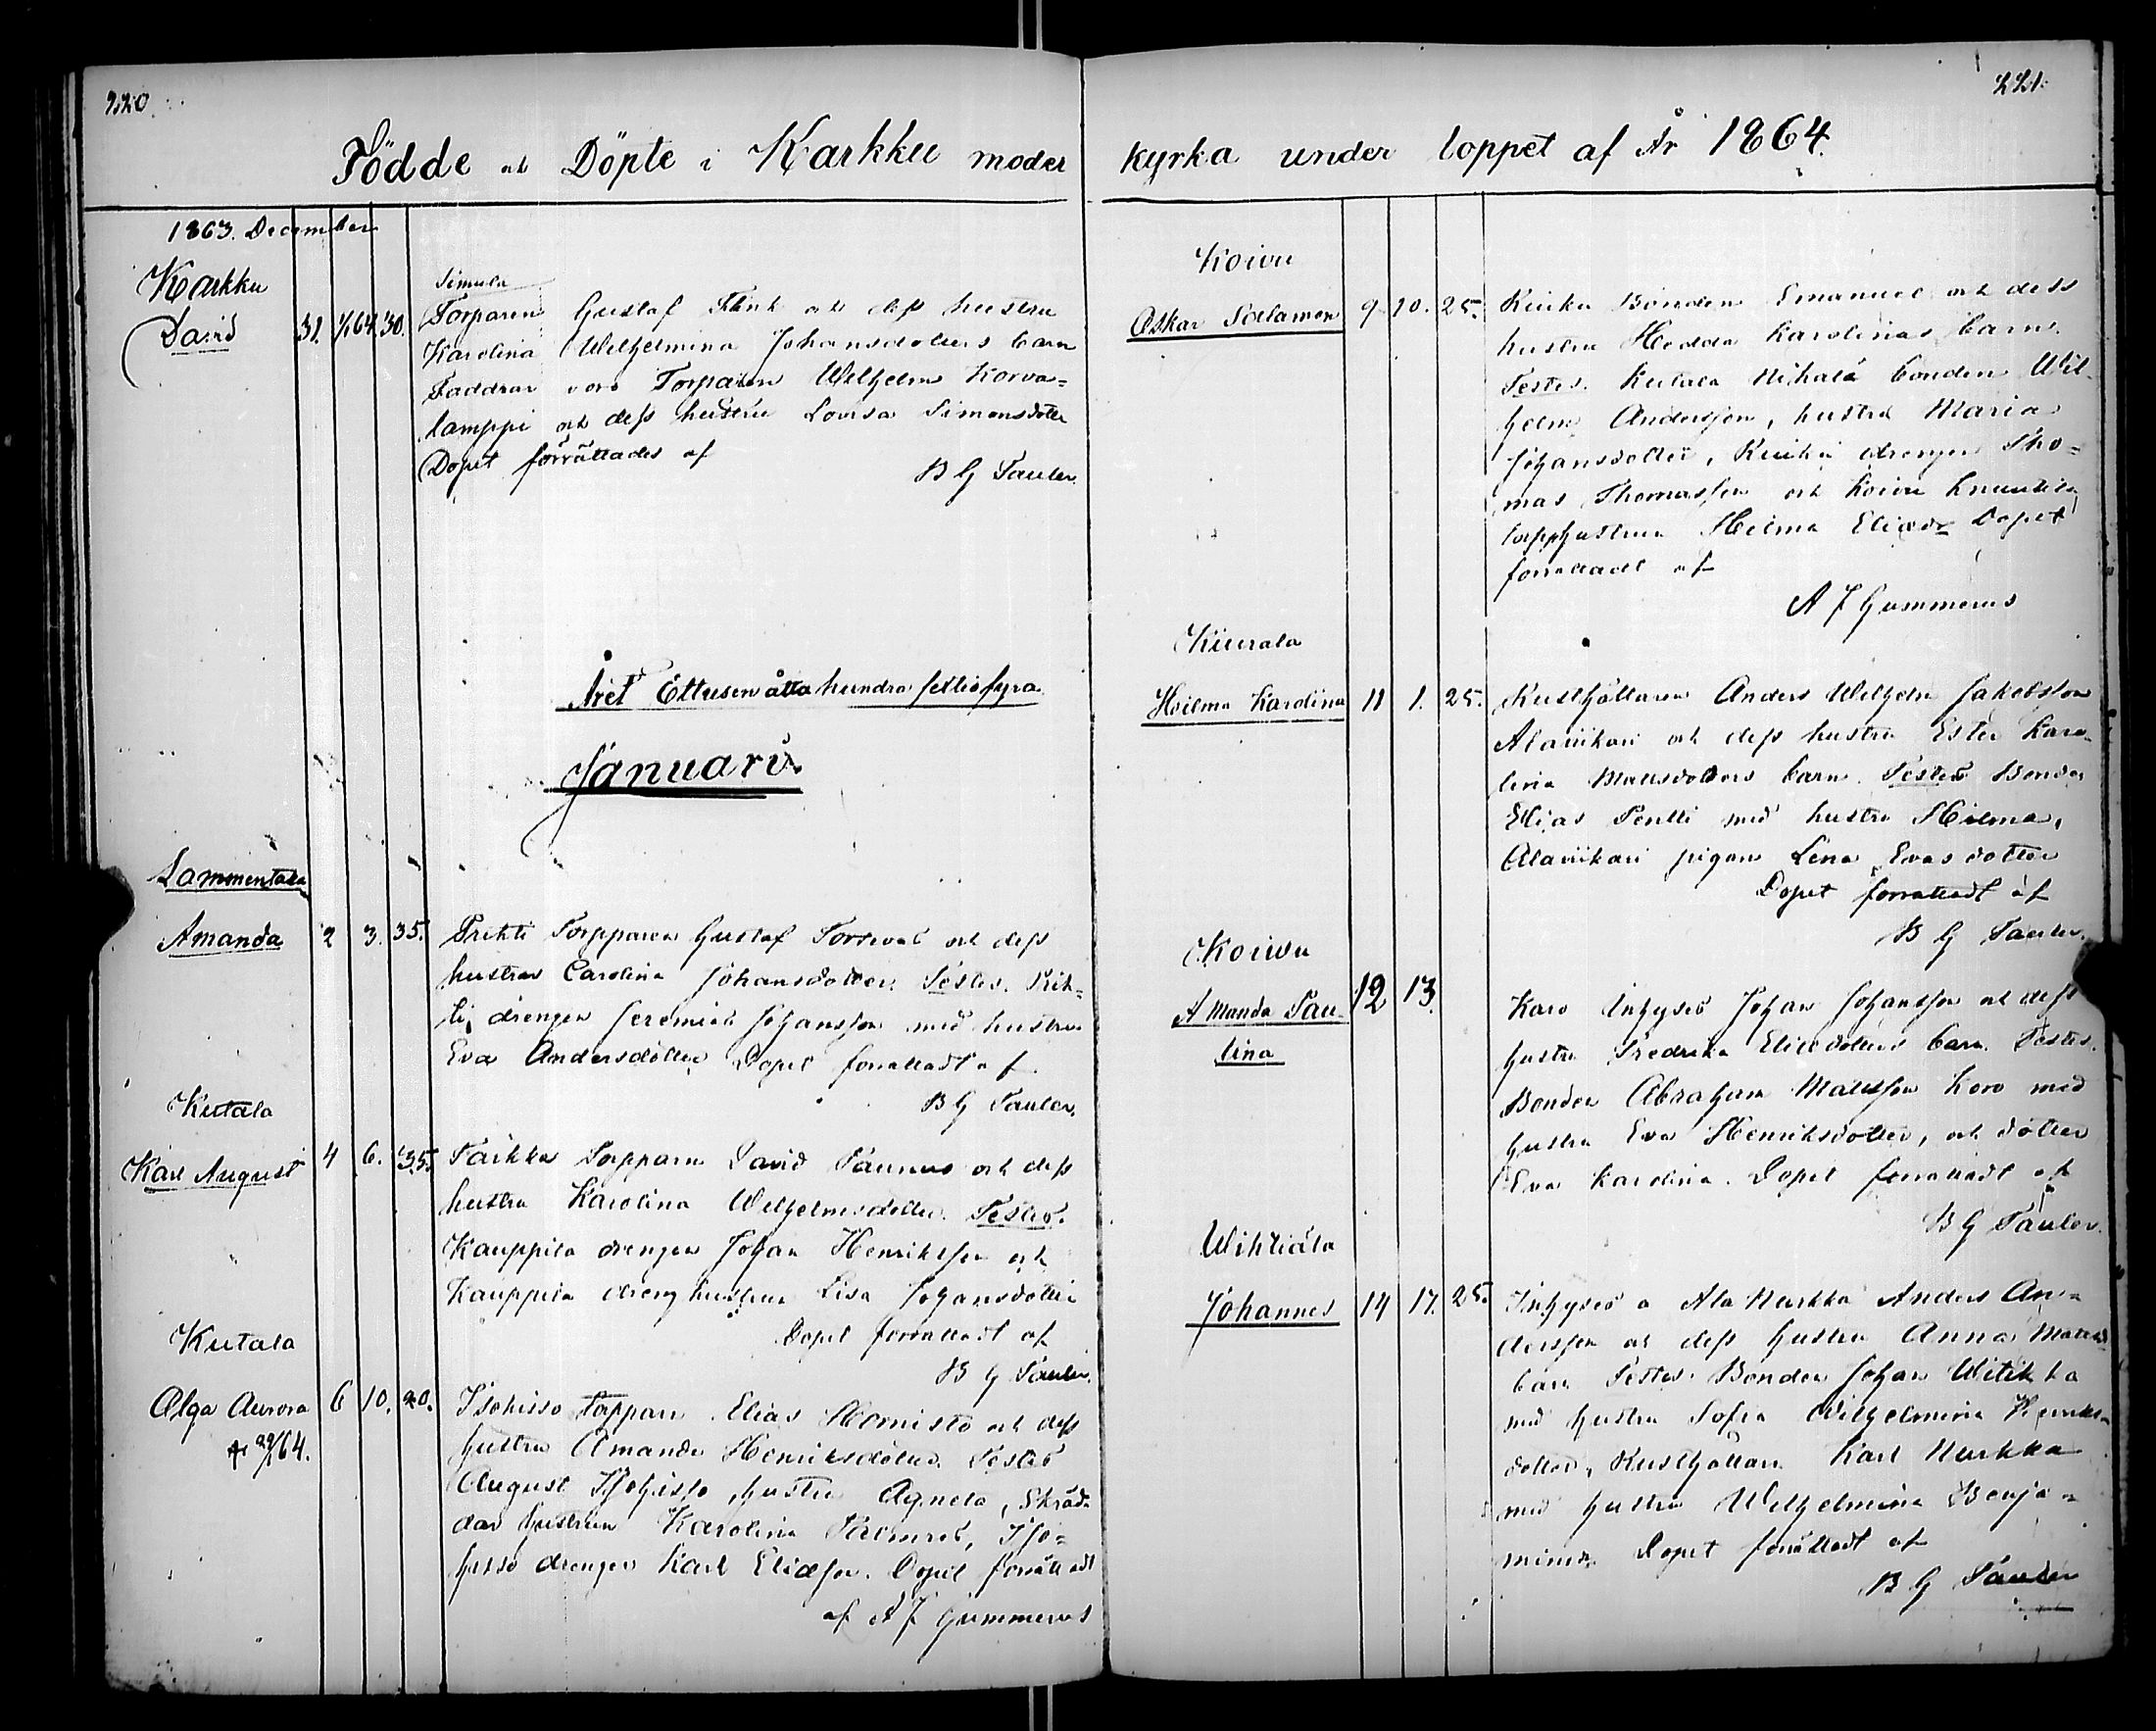 220
Födde och Döpte i Karkku moder
1863. December
Karkku
David 31. 1/1 64. 30.
Simula
Torparen Gustaf Flink och dess hustru
Karolina Wilhelmina Johansdotters barn
Faddrar voro Torparen Wilhelm Korva=
lamppi och dess hustru Lovisa Simonsdotter
Dopet förrättades af
B G Tauler.
Året Ettusen åtta hundra settio fyra
Januari
Lammentaka
Amanda 2 3. 35.
Torpparen Gustaf och dess
hustrus Carolina Johansdotter. Testes.
drengen Jeremias Johansson med hustru
Eva Andersdotter Dopet forrattadt af
B G Tauler.
Kutala
Karl August 4 6. 35.
Torpparen David och dess
hustru Karolina Wilhelmsdotter. Testes.
Kauppila drengen Johan Henriksson och
Kauppila dreng hustrun Lisa Johansdotter
Dopet forrattadt af
B G Tauler.
Kutala
Olga Aurora 6 10. 20.
29/1 64.
Isohisso Torpparn Elias och dess
hustru Amanda Henriksdotter. Testes
August Isohisso hustru Agneta, Skräd=
dar hustrun Karolina Iso=
hisso drengen Karl Eliasson. Dopet forrättadt
af A J Gummerus
221.
kyrka under loppet af År 1864.
Koivu
Oskar Salamon 9 10. 25.
Bonden Emanuel och dess
hustru Hedda Karolinas barn.
Testes. Kutala bonden Wil=
helm Andersson, hustru Maria
Johansdotter, drengen Tho=
mas Thomasson och Koivu Knuutila
torpphustrun Hilma Eliædr Dopet
forrattadt af
A J Gummerus
Kiurala
Hilma Karolina 11 1. 25.
Rusthållaren Anders Wilhelm Jakobsson
Alaviikari och dess hustru Ester Karo=
lina Mattsdotters barn. Testes Bonden
Elias Pentti med hustru Hilma,
Alaviikari pigan Lena Evasdotter
Dopet forrattadt af
B G Tauler.
Koivu
Amanda Pau= 12 13.
lina
Karo Inhyses Johan Johansson och dess
hustru Fredrika Eliædotters barn. Testes.
Bonden Abraham Mattsson Koro med
hustru Eva Henriksdotter, och dotter
Eva Karolina. Dopet forrattadt af
B G Tauler.
Wihtiala
Johannes 14 17. 25.
Inhyses å Ala Nurkka Anders An=
dersson och dess hustru Anna
barn Testes. Bonden Johan Witikka
med hustru Sofia Wilhelmina Henriks=
dotter, Rusthållarn Karl Nurkka
med hustru Wilhelmina Benja=
minsdr. Dopet forrättadt af
B G Tauler